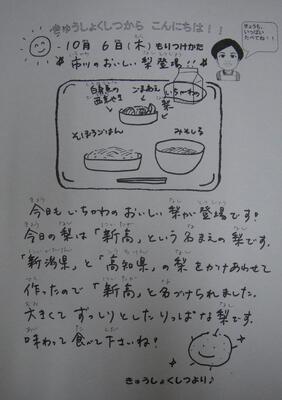 きゅうしょくしつから こんにちは！！
10月 6日(木) もりつけかた
市川のおいしい 梨登場！！
きょうも、いっぱいたべてね！！
白身魚の西京やき
ごまあえ
いちかわの梨
そぼろごはん
みそしる
今日も いちかわの おいしい 梨が登場です！
今日の 梨は「新高」という 名まえの 梨です。
「新潟県」と「高知県」の 梨を かけあわせて
作ったので「新高」と名づけられました。
大きくて ずっしりとした りっぱな 梨です。
味わって 食べて 下さいね！
きゅうしょくしつより♪